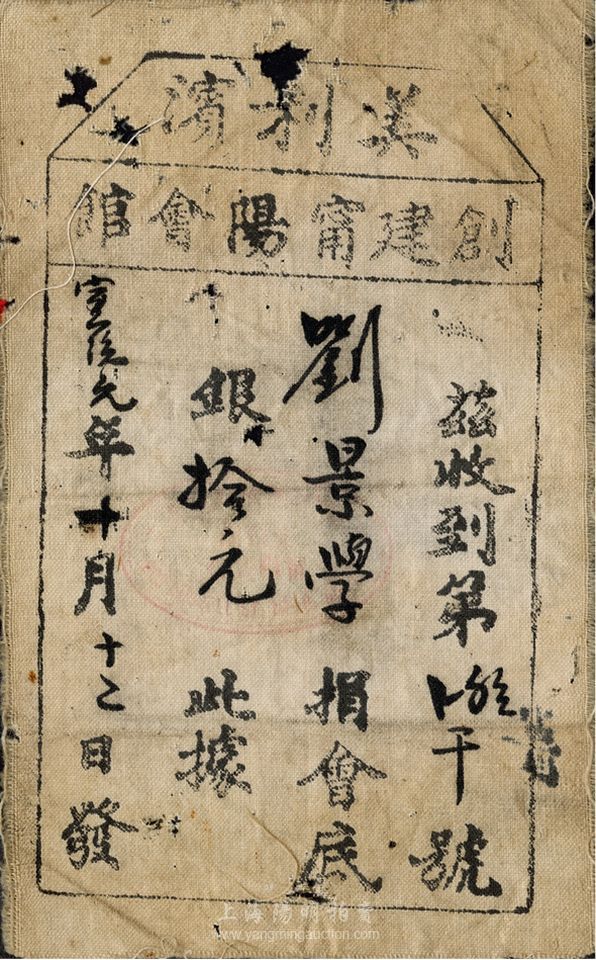 美利濱
創建甯陽會館
茲收到第 干號
劉景學捐會底
銀拾元 此據
宣統元年十月十二日發
上海陽明拍賣
www.yangmingauction.com